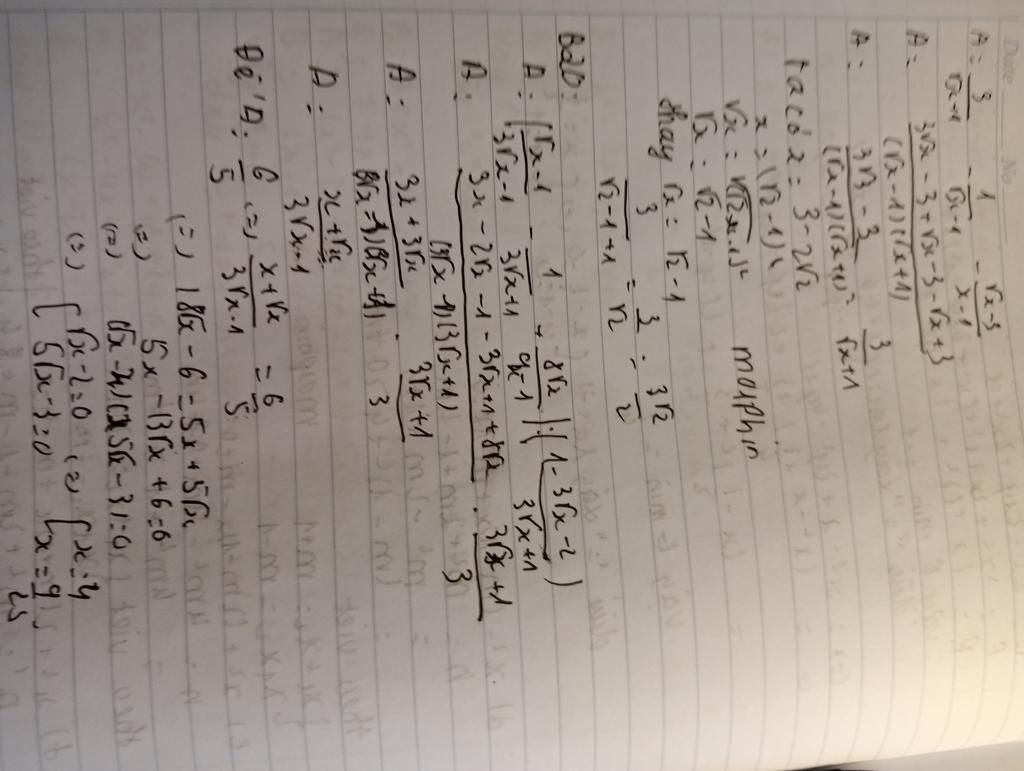 Date No
A = 3/(√x+1) - 1/(√x-1) - (√x-3)/(x-1)
A = (3√x - 3 + √x - 3 - √x + 3)/((√x-1)(√x+1))
A = (3√3 - 3)/((√x-1)(√x+1)) = 3/(√x+1)
ta có x = 3-2√2
x = (√2-1)²
√x = √(√2-1)²
√x = √2-1 mauphin
thay √x = √2-1
3/(√2-1+1) = 3/√2 = 3√2/2
B20:
A = ((√x-1)/(3√x-1) - 1/(3√x+1) + 8√x/(9x-1)) : (1 - (3√x-2)/(3√x+1))
A = (3x - 2√x - 1 - 3√x + 1 + 8√x)/((3√x-1)(3√x+1)) . (3√x+1)/3
A = (3x+3√x)/((3√x-1)(3√x+1)) . (3√x+1)/3
A = (x+√x)/(3√x-1)
Để A = 6/5 (=) (x+√x)/(3√x-1) = 6/5
(=) 18√x - 6 = 5x + 5√x
(=) 5x - 13√x + 6 = 0
(=) (√x-2)(5√x-3) = 0
(=) [ √x-2=0 (=) [ x=4
[ 5√x-3=0 [ x = 9/25